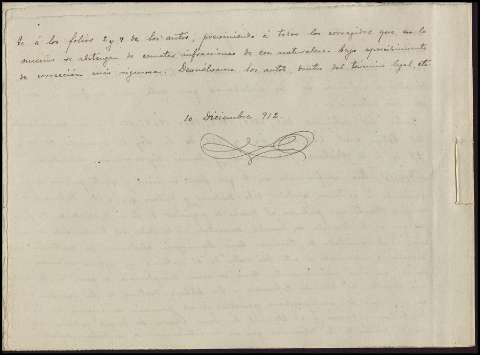 te á los folios 2 y 4 de los autos, previniendo á todos los corregidos que en lo
sucesivo se abstengan de cometer infracciones de esa naturaleza bajo apercibimiento
de corrección más rigurosa. Devuélvanse los autos dentro del término legal, etc
10 Diciembre 912.